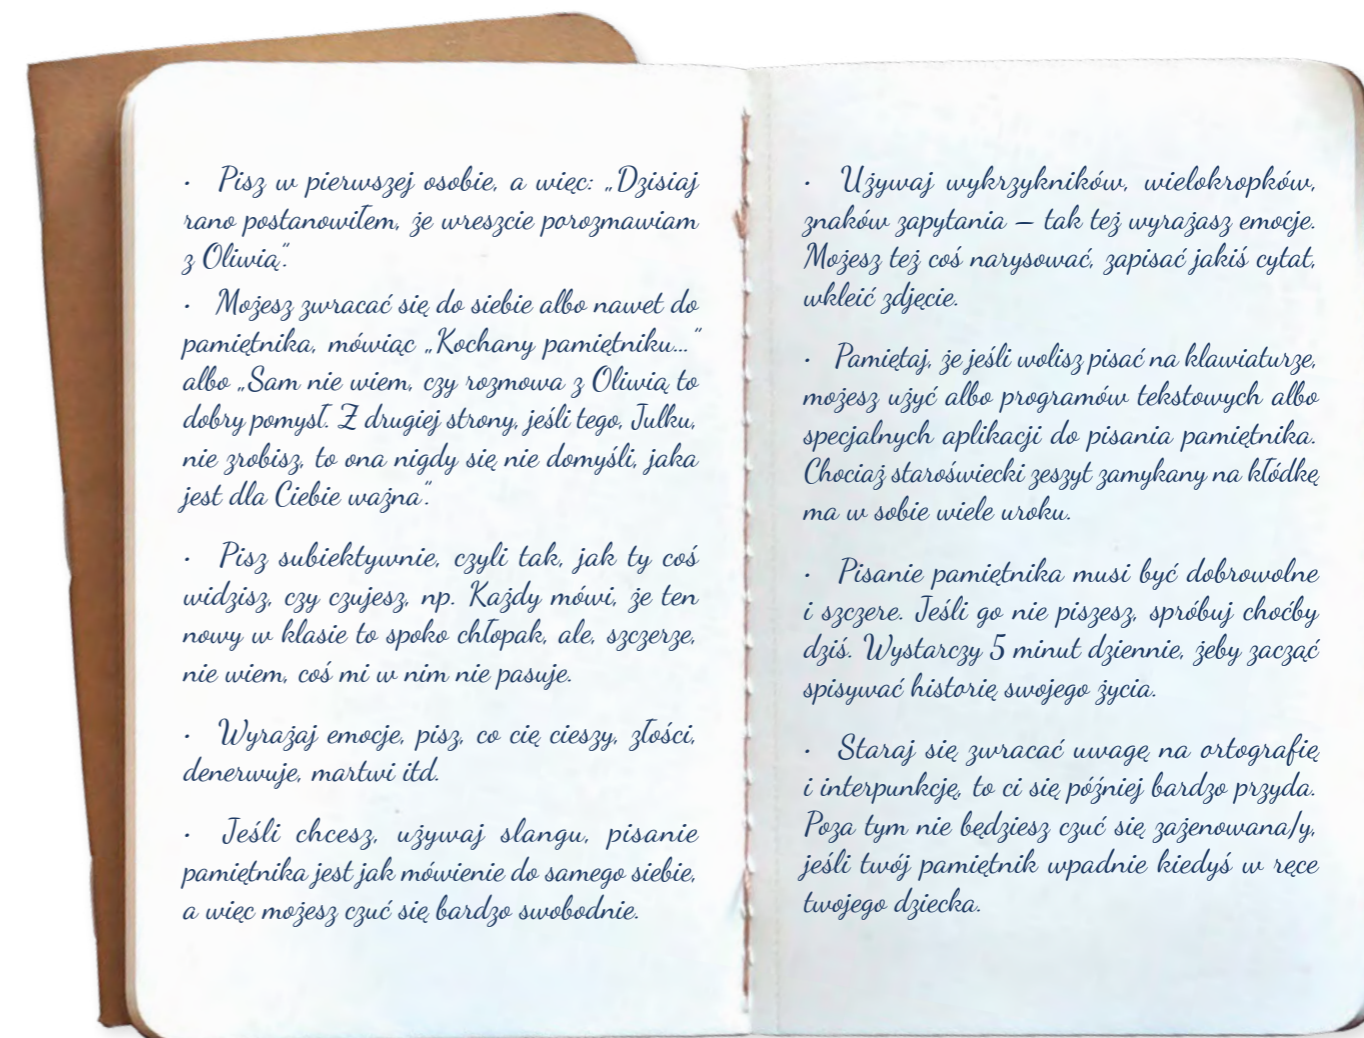 · Pisz w pierwszej osobie, a więc: „Dzisiaj
rano postanowiłem, że wreszcie porozmawiam
z Oliwią”.
· Możesz zwracać się do siebie albo nawet do
pamiętnika, mówiąc „Kochany pamiętniku...”
albo „Sam nie wiem, czy rozmowa z Oliwią to
dobry pomysł. Z drugiej strony, jeśli tego, Julku,
nie zrobisz, to ona nigdy się nie domyśli, jaka
jest dla Ciebie ważna”.
· Pisz subiektywnie, czyli tak, jak ty coś
widzisz, czy czujesz, np. Każdy mówi, że ten
nowy w klasie to spoko chłopak, ale, szczerze,
nie wiem, coś mi w nim nie pasuje.
· Wyrażaj emocje, pisz, co cię cieszy, złości,
denerwuje, martwi itd.
· Jeśli chcesz, używaj slangu, pisanie
pamiętnika jest jak mówienie do samego siebie,
a więc możesz czuć się bardzo swobodnie.
· Używaj wykrzykników, wielokropków,
znaków zapytania – tak też wyrażasz emocje.
Możesz też coś narysować, zapisać jakiś cytat,
wkleić zdjęcie.
· Pamiętaj, że jeśli wolisz pisać na klawiaturze,
możesz użyć albo programów tekstowych albo
specjalnych aplikacji do pisania pamiętnika.
Chociaż staroświecki zeszyt zamykany na kłódkę
ma w sobie wiele uroku.
· Pisanie pamiętnika musi być dobrowolne
i szczere. Jeśli go nie piszesz, spróbuj choćby
dziś. Wystarczy 5 minut dziennie, żeby zacząć
spisywać historię swojego życia.
· Staraj się zwracać uwagę na ortografię
i interpunkcję, to ci się później bardzo przyda.
Poza tym nie będziesz czuć się zażenowana/y,
jeśli twój pamiętnik wpadnie kiedyś w ręce
twojego dziecka.